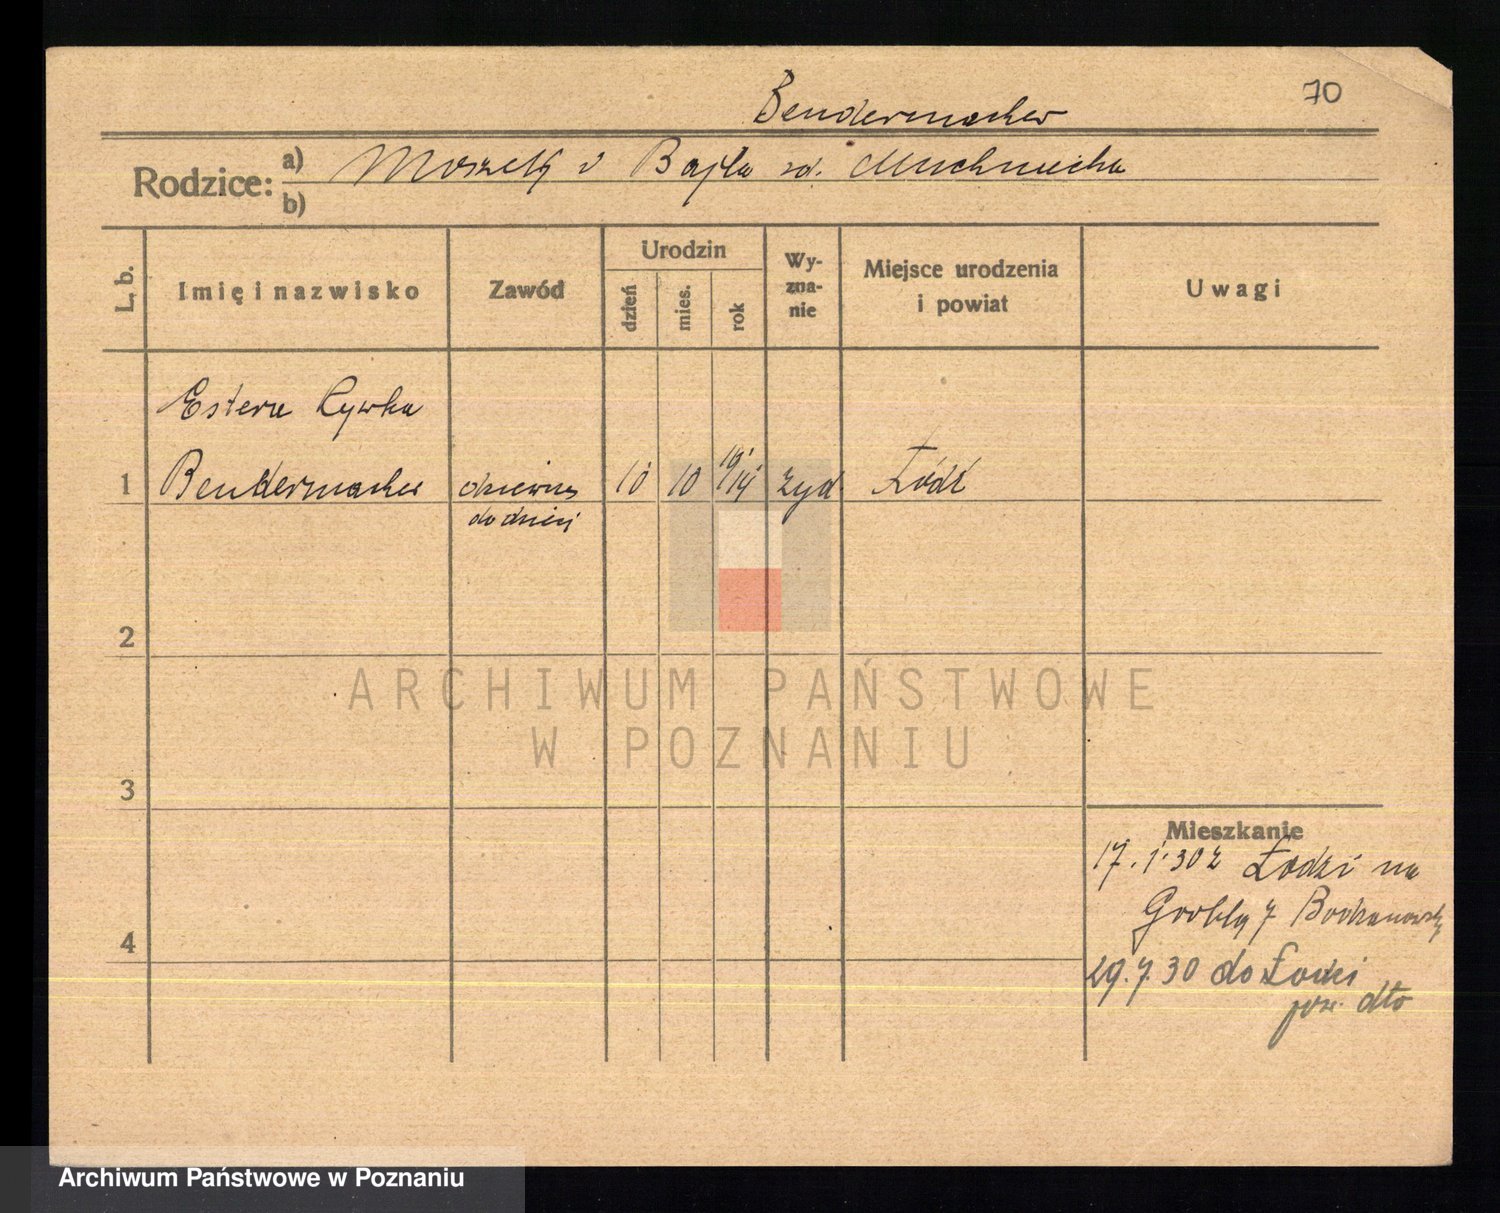 70
Bendermacher
Rodzice:
a) Moszek i Bajla zd. Muchnicka
b)
L. b.
Imię i nazwisko
Zawód
Urodzin
dzień
mies.
rok
Wy-
zna-
nie
Miejsce urodzenia
i powiat
Uwagi
Estera Rywka
1 Bendermacher dziewcz 10 10 19/14 żyd Łódź
do dzieci
2
3
4
Mieszkanie
17.1.30 z Łodzi na
Grobla 7
29.7.30 do Łodzi
dto
ARCHIWUM PAŃSTWOWE
W POZNANIU
Archiwum Państwowe w Poznaniu